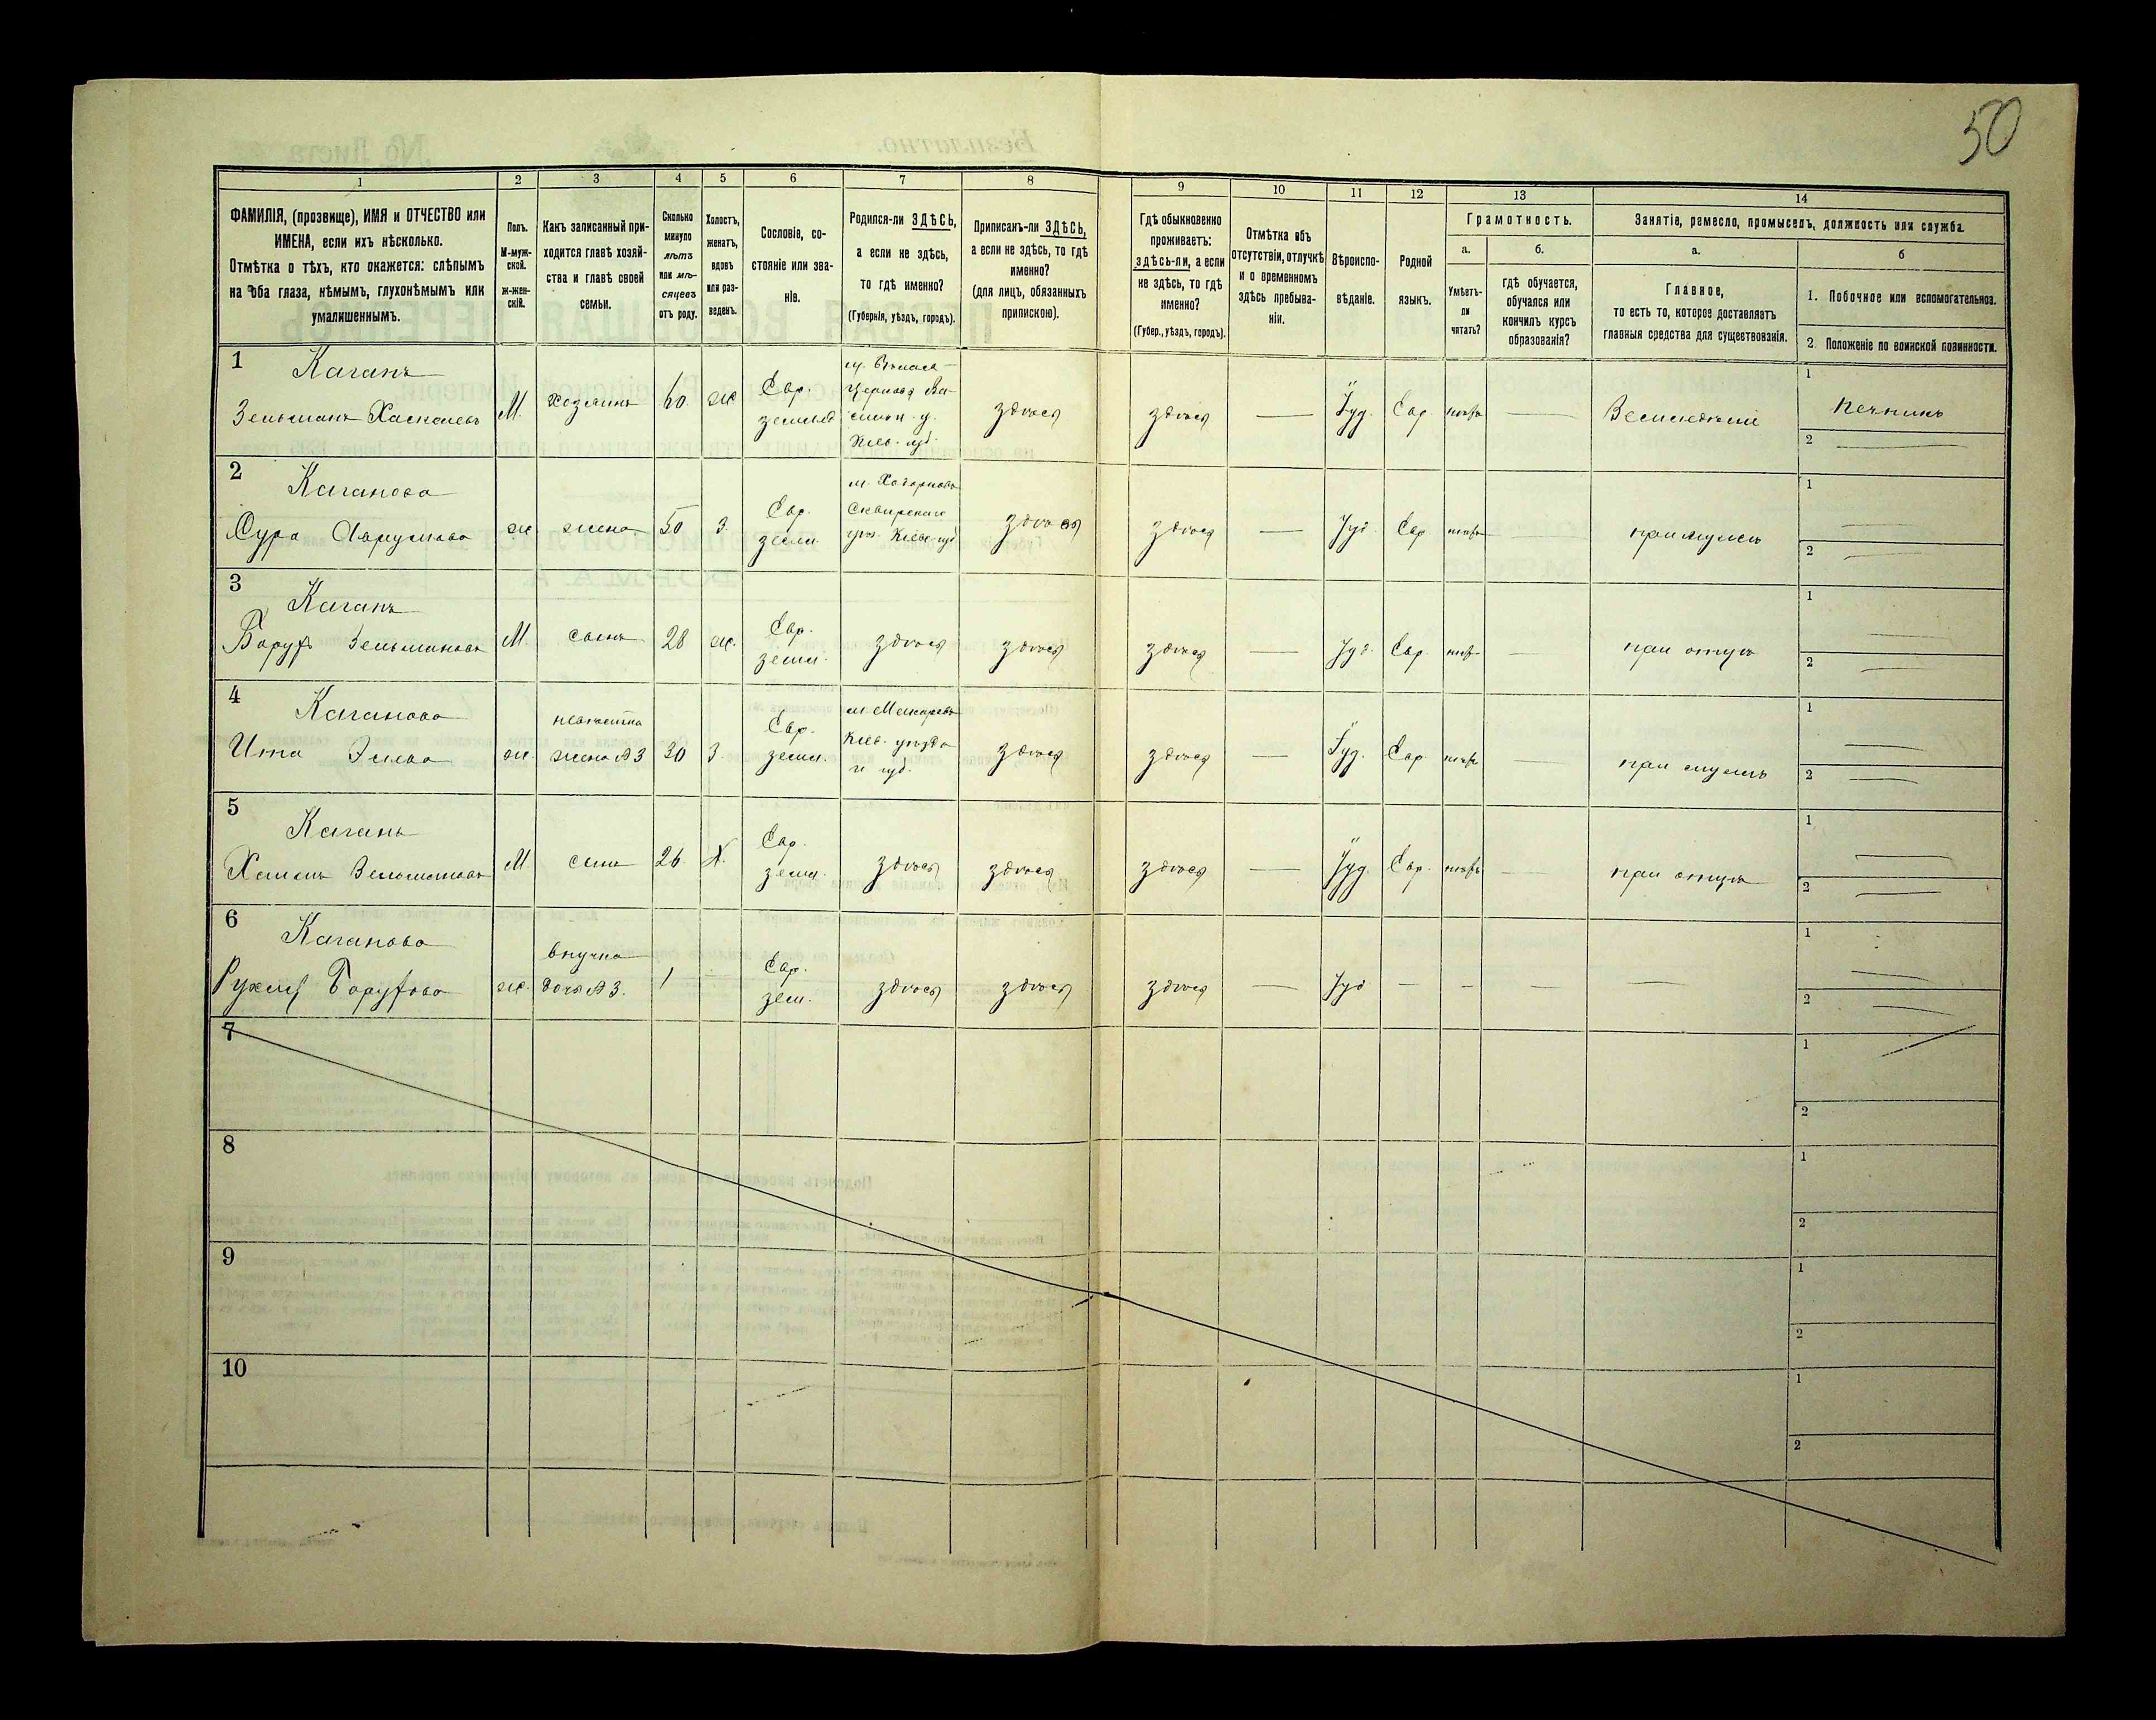 50
1 2 3 4 5 6 7 8 9 10 11 12 13 14
ФАМИЛІЯ, (прозвище), ИМЯ и ОТЧЕСТВО или
ИМЕНА, если ихъ нѣсколько.
Отмѣтка о тѣхъ, кто окажется: слѣпымъ
на оба глаза, нѣмымъ, глухонѣмымъ или
умалишеннымъ.
Полъ.
М-муж-
ской.
ж-жен-
скій.
Какъ записанный при-
ходится главѣ хозяй-
ства и главѣ своей
семьи.
Сколько
минуло
лѣтъ
или мѣ-
сяцевъ
отъ роду.
Холостъ,
женатъ,
вдовъ
или раз-
веденъ.
Сословіе, со-
стояніе или зва-
ніе.
Родился-ли ЗДѢСЬ,
а если не здѣсь,
то гдѣ именно?
(Губернія, уѣздъ, городъ).
Приписанъ-ли ЗДѢСЬ,
а если не здѣсь, то гдѣ
именно?
(для лицъ, обязанныхъ
припискою).
Гдѣ обыкновенно
проживаетъ:
здѣсь-ли, а если
не здѣсь, то гдѣ
именно?
(Губер., уѣздъ, городъ).
Отмѣтка объ
отсутствіи, отлучкѣ
и о временномъ
здѣсь пребыва-
ніи.
Вѣроиспо-
вѣданіе.
Родной
языкъ.
Грамотность.
а.
Умѣетъ-
ли
читать?
б.
гдѣ обучается,
обучался или
кончилъ курсъ
образованія?
Занятіе, ремесло, промыселъ, должность или служба.
а.
Главное,
то есть то, которое доставляетъ
главныя средства для существованія.
б
1. Побочное или вспомогательное.
2. Положеніе по воинской повинности.
1
Каганъ
Зельманъ
М. хозяинъ 60 ж
Евр.
Кіев. губ.
здѣсь здѣсь — Іуд. Евр.
1 Печникъ
2
2
Каганова
Сура Аврумова ж жена 50 З.
Евр.
земл.
Сквирскаго
здѣсь здѣсь — Іуд. Евр. — при мужѣ
1
2
3
Каганъ
Борухъ Зельмановъ М. сынъ 28 ж.
Евр.
земл.
здѣсь здѣсь здѣсь — Іуд. Евр. — при отцѣ
1
2
4
Каганова
Ита ж.
невѣстка
жена №3 30 З.
Евр.
земл.
м. Макаровъ
Кіев. уѣзда
и губ.
здѣсь здѣсь — Іуд. Евр. — при мужѣ
1
2
5
Каганъ
Зельмановъ М. сынъ 26 Х.
Евр.
земл.
здѣсь здѣсь здѣсь — Іуд. Евр. — при отцѣ
1
2
6
Каганова
Борухова ж.
внучка
дочь №3. 1
Евр.
зем.
здѣсь здѣсь здѣсь — Іуд — — — —
1
2
7
1
2
8
1
2
9
1
2
10
1
2